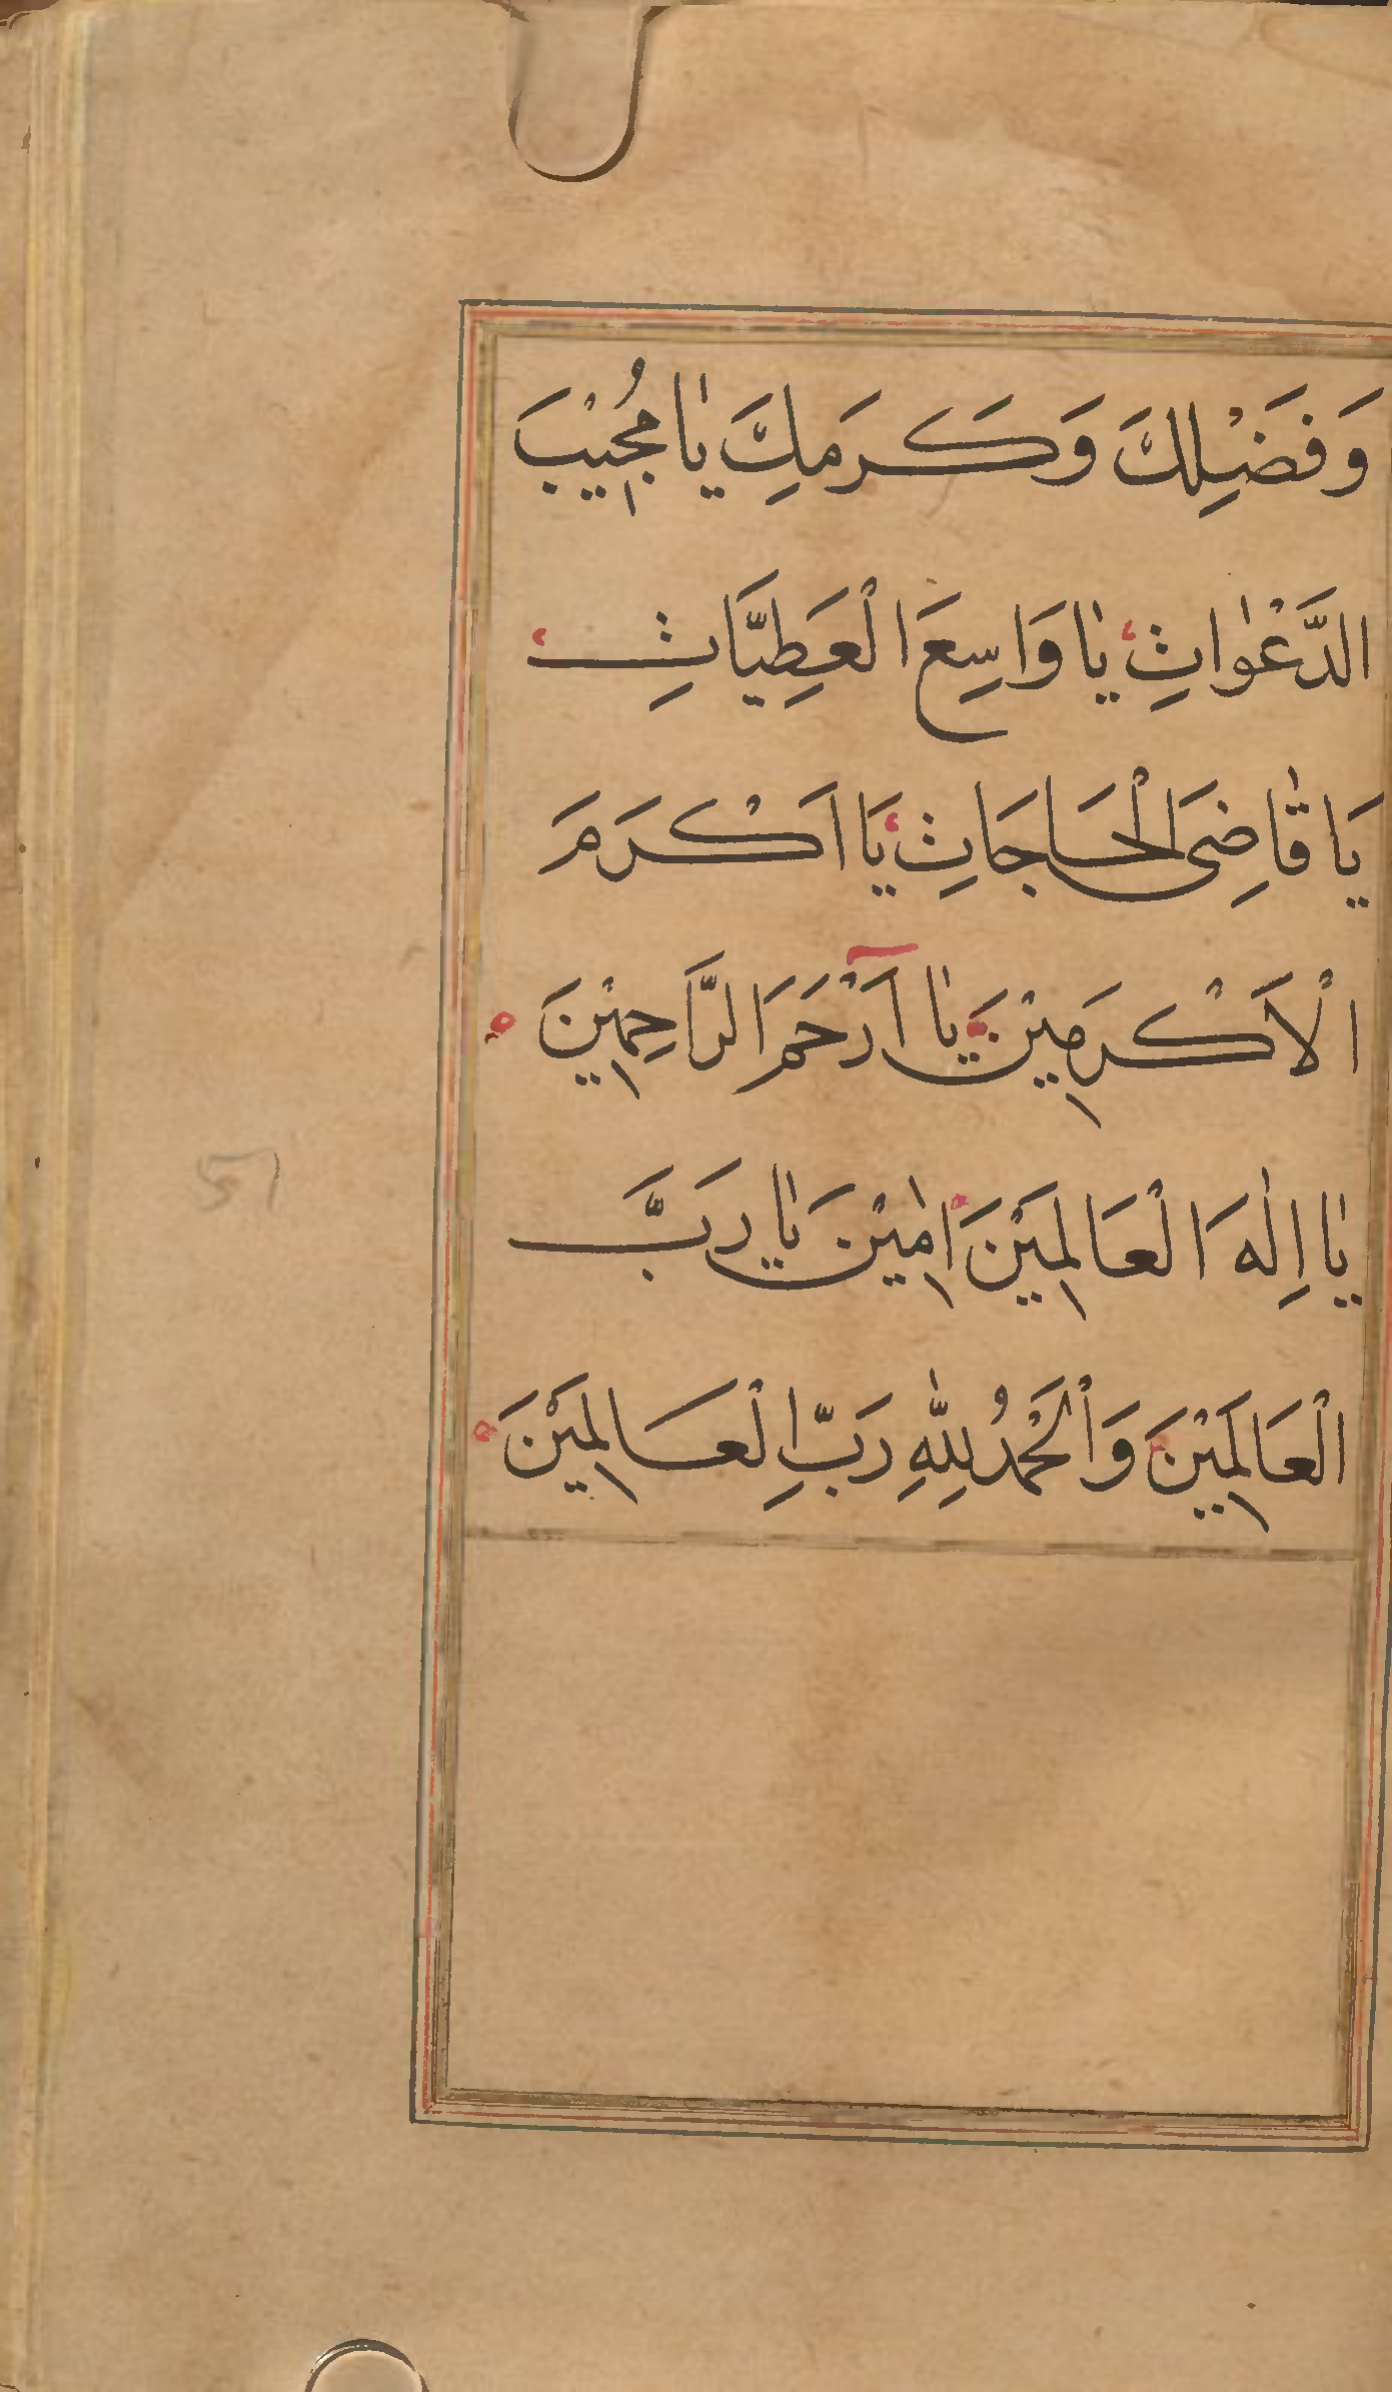 وَفَضْلِكَ وَكَرَمِكَ يٰا مُجِيْبَ
الدَّعْوٰاتِ يٰا وَاسِعَ الْعَطِيَّاتِ
يَا قٰاضِىَ الْحَاجَاتِ يَا اَكْرَمَ
الْاَكْرَمِيْنَ يٰا اَرْحَمَ الرَّاحِمِيْنَ
يٰا اِلٰهَ الْعَالَمِيْنَ اٰمِيْنَ يٰا رَبَّ
الْعَالَمِيْنَ وَالْحَمْدُ لِلّٰهِ رَبِّ الْعَالَمِيْنَ
51